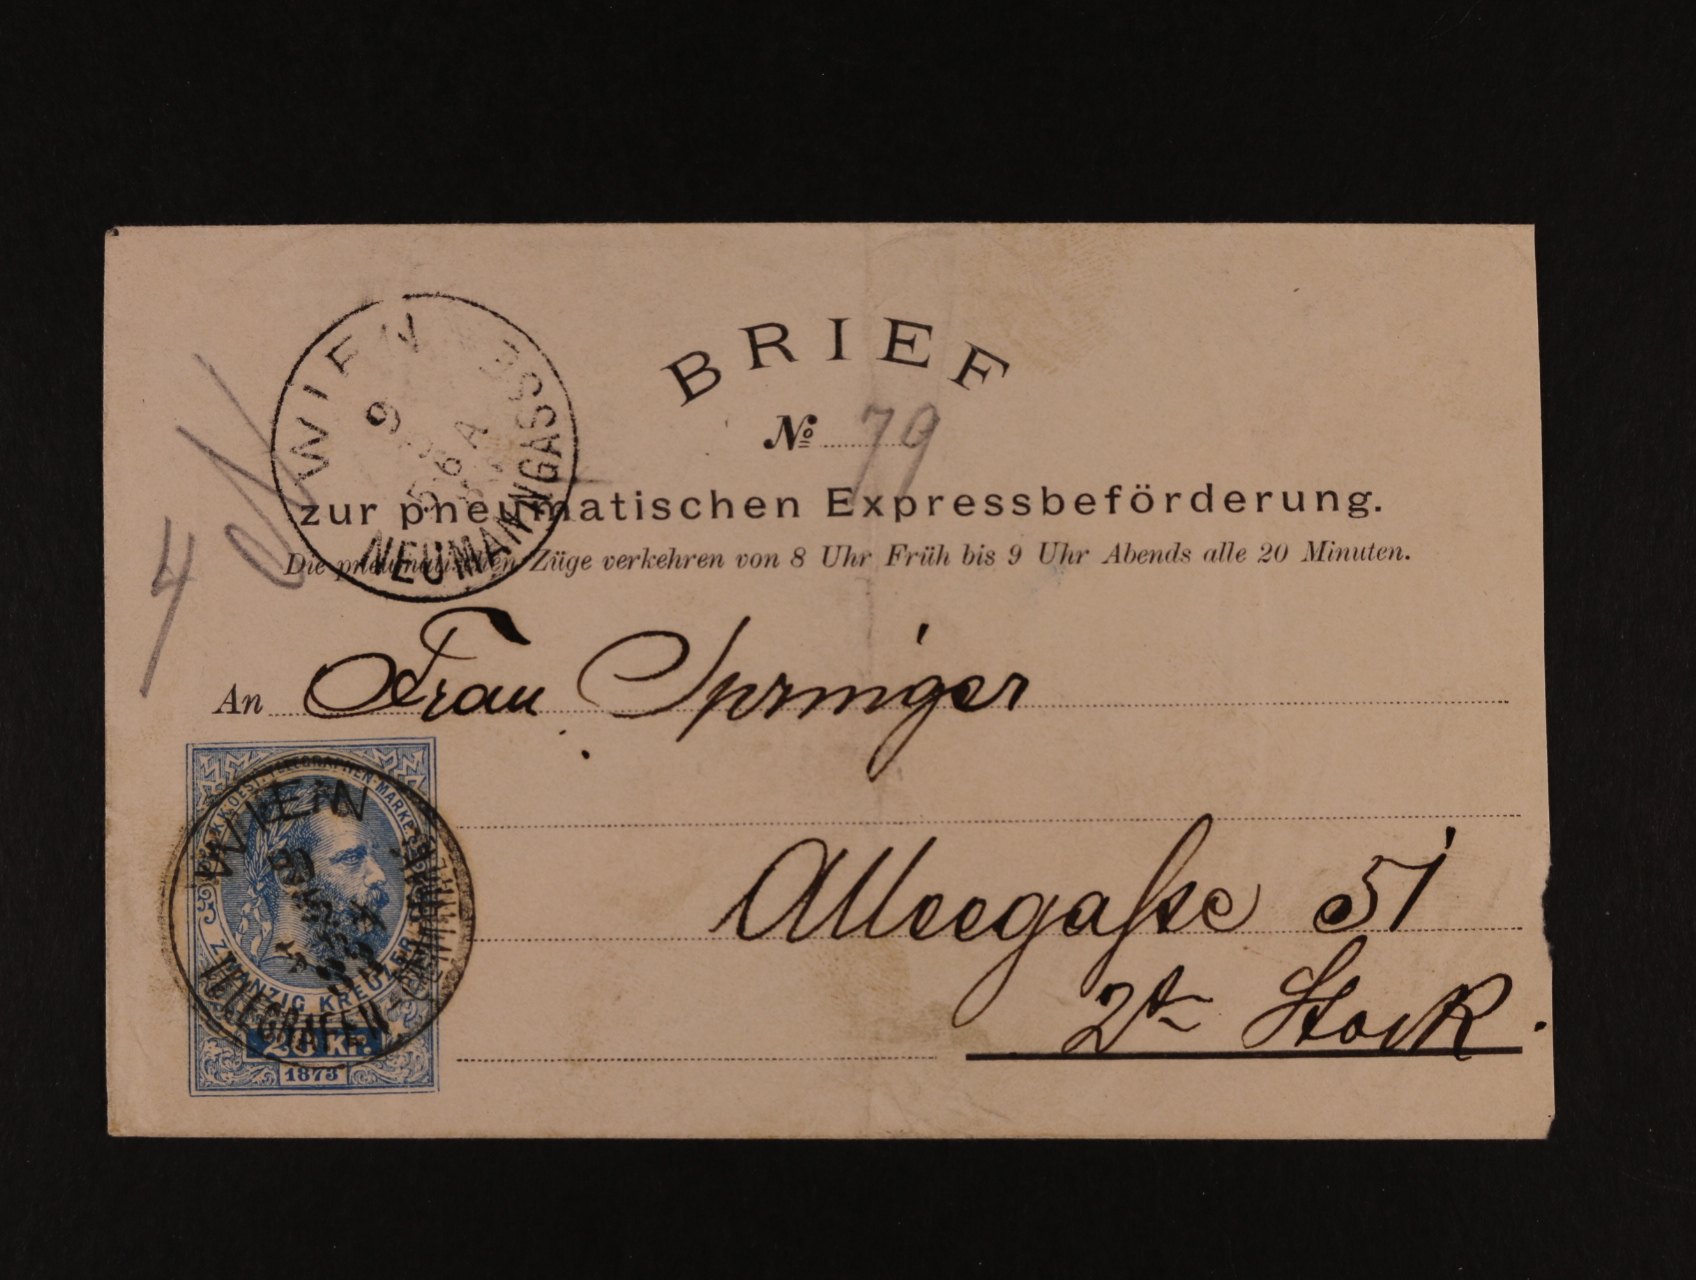 BRIEF
№ 79
zur pneumatischen Expressbeförderung.
Die pneumatischen Züge verkehren von 8 Uhr Früh bis 9 Uhr Abends alle 20 Minuten.
WIEN
9
6 A
NEUMANNGASSE
4
An Frau Springer
Alleegaſse 51
2tr Stock.
K.K. OEST. TELEGRAPHEN-MARKE
ZWANZIG KREUZER
20 Kr.
1873
WIEN
TELEGRAFEN-CENTRALE